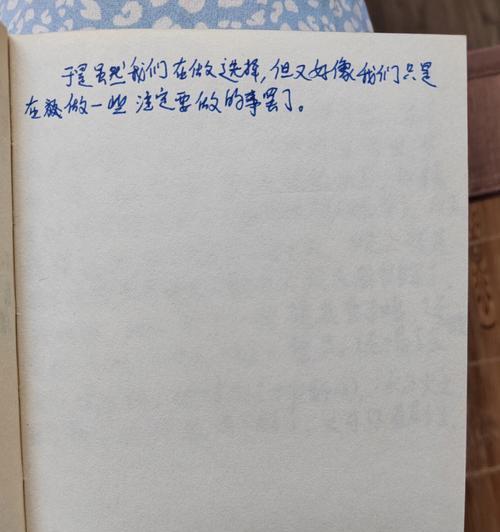 于是虽然我们在做选择,但又好像我们只是
在做一些注定要做的事罢了。